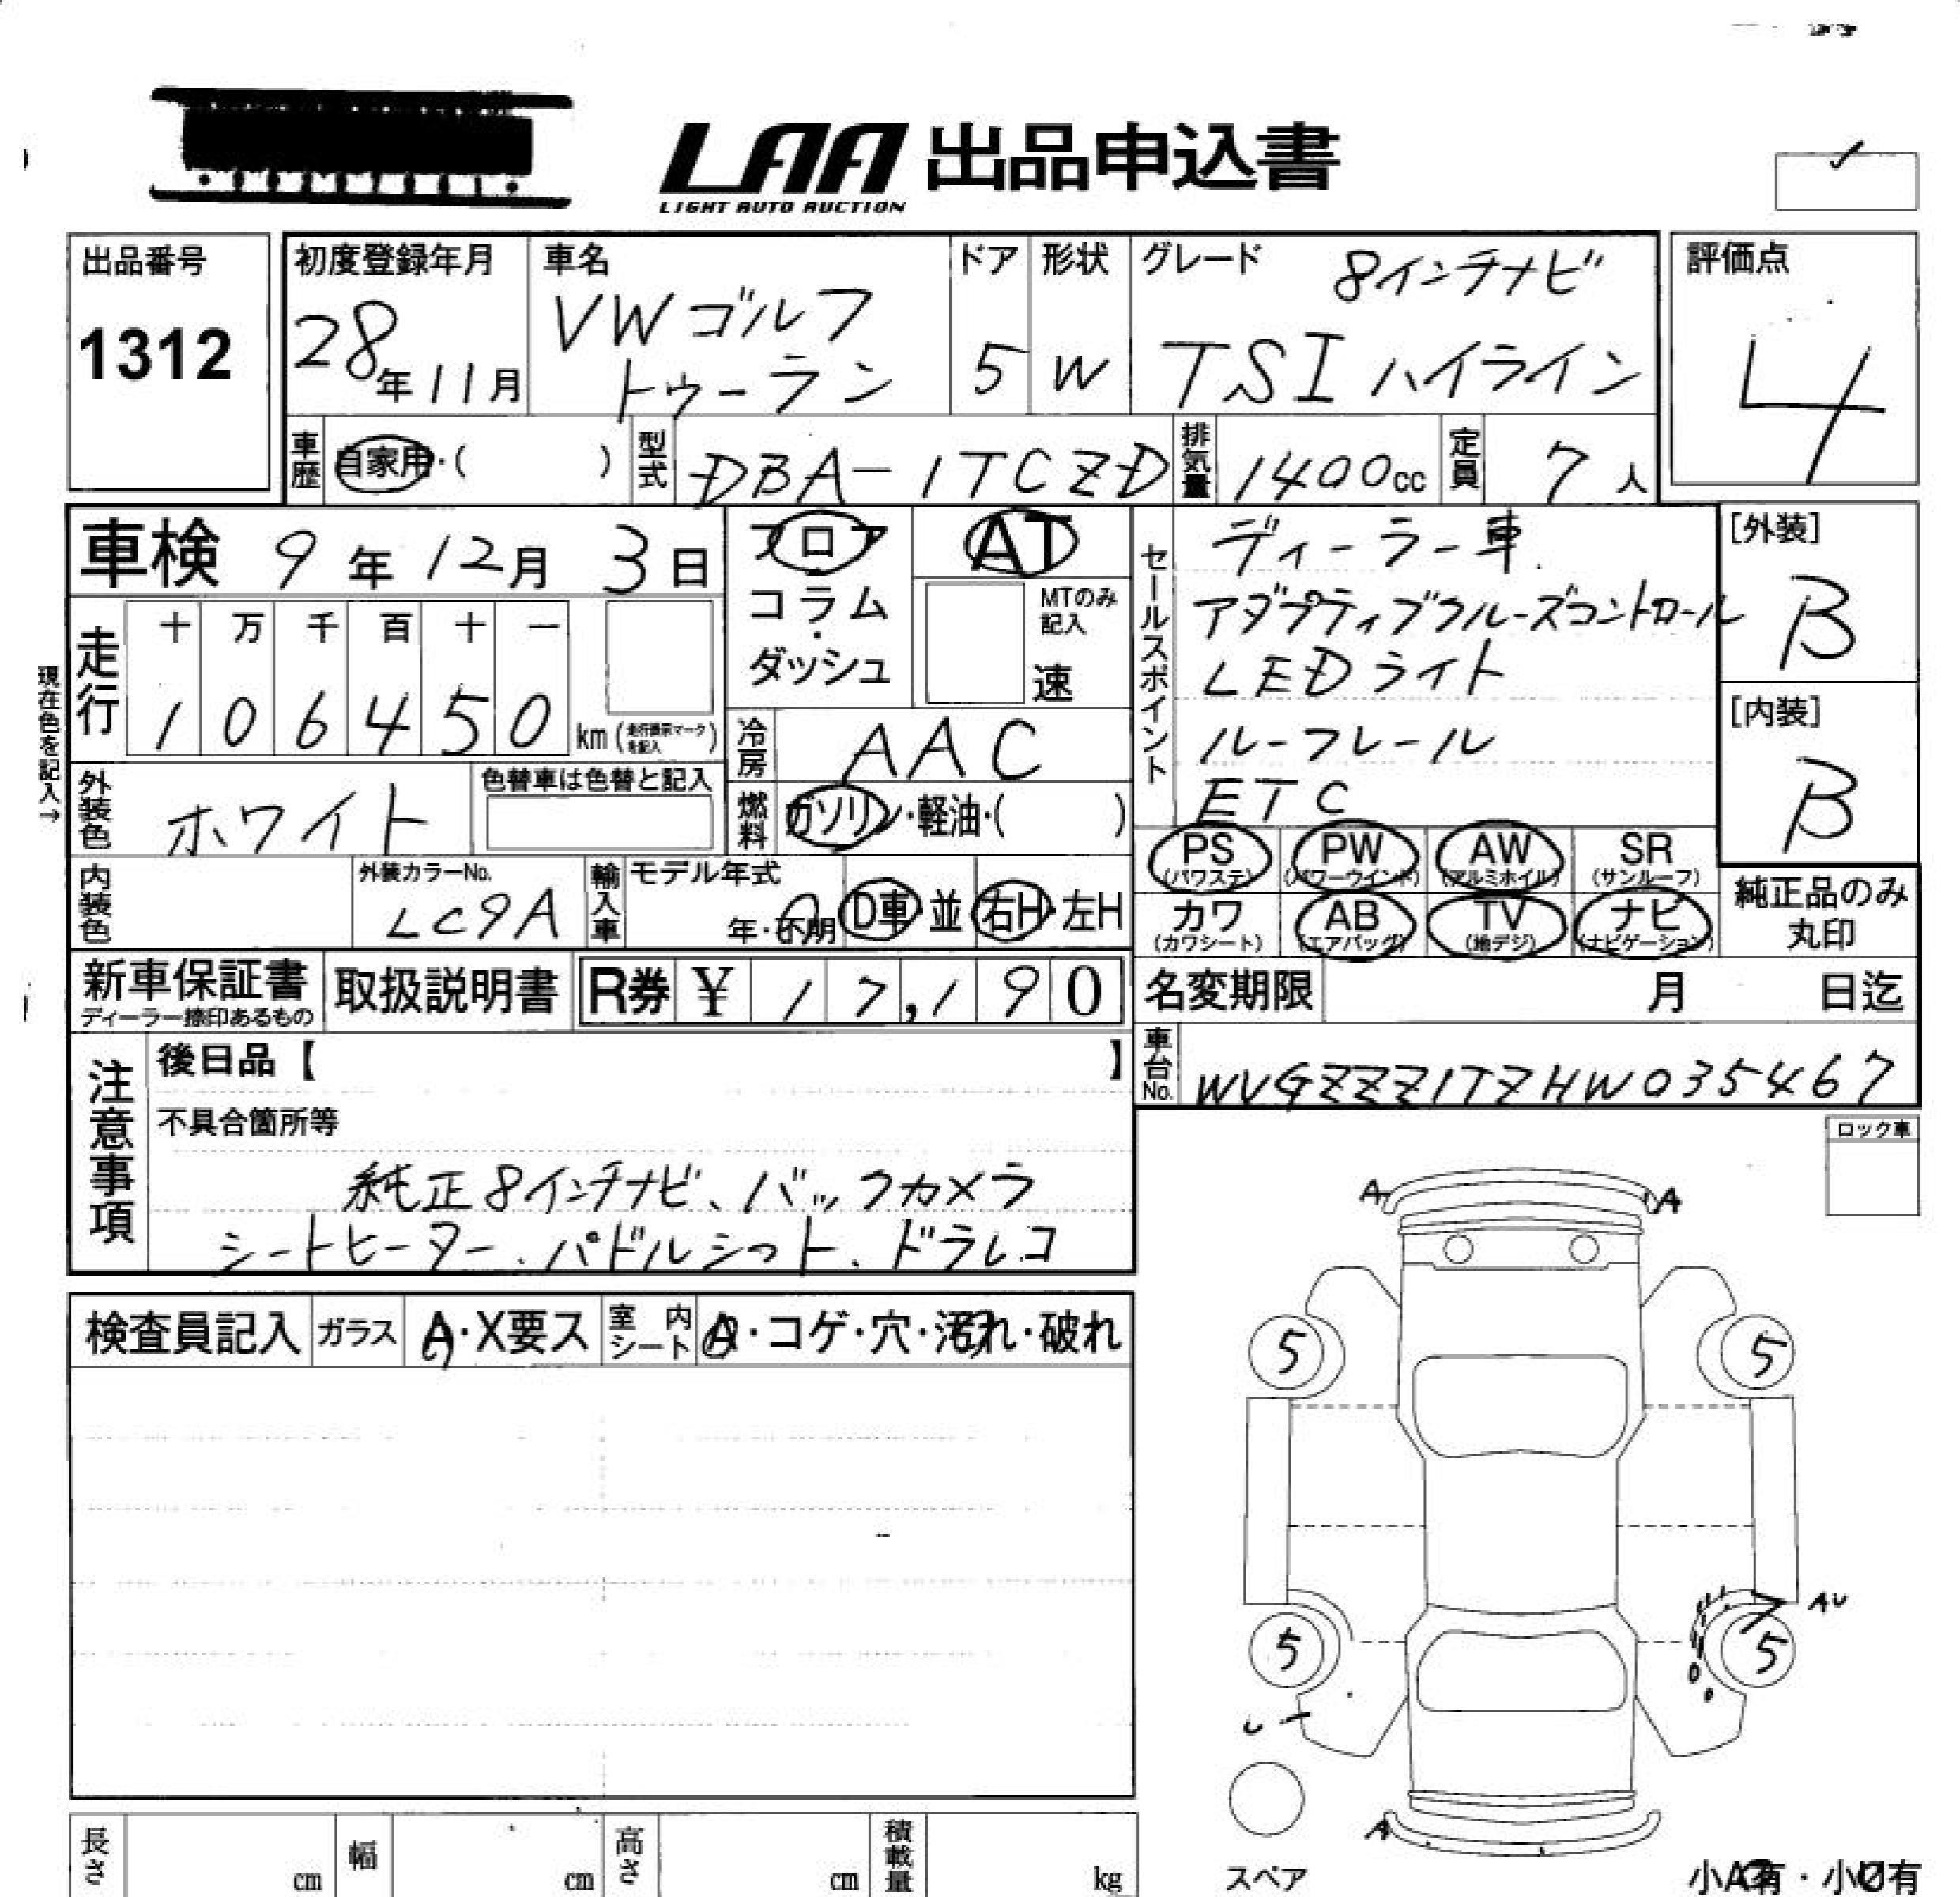 LAA 出品申込書
LIGHT AUTO AUCTION
出品番号
1312
初度登録年月
28年11月
車名
VWゴルフ
トゥーラン
ドア
5
形状
W
グレード
8インチナビ
TSIハイライン
評価点
4
車歴
自家用・( )
型式
DBA-1TCZD
排気量
1400cc
定員
7人
車検 9年12月3日
フロア
コラム
・
ダッシュ
AT
MTのみ
記入
速
セールスポイント
ディーラー車.
アダプティブクルーズコントロール
LEDライト
ルーフレール
ETC
[外装]
B
[内装]
B
現在色を記入→
走行
十 万 千 百 十 一
1 0 6 4 5 0 km
冷房
AAC
外装色
ホワイト
色替車は色替と記入
燃料
ガソリン・軽油・( )
PS
(パワステ)
PW
(パワーウインド)
AW
(アルミホイル)
SR
(サンルーフ)
カワ
(カワシート)
AB
(エアバッグ)
TV
(地デジ)
ナビ
(ナビゲーション)
純正品のみ
丸印
内装色
外装カラーNo.
LC9A
輸入車
モデル年式
年・不明
D車・並
右H・左H
新車保証書
ディーラー捺印あるもの
取扱説明書
R券 ¥ 17,190
名変期限 月 日迄
車台No.
WVGZZZ1TZHW035467
注意事項
後日品【 】
不具合箇所等
純正8インチナビ、バックカメラ
シートヒーター、パドルシフト、ドラレコ
ロック車
検査員記入
ガラス
A・X要ス
室内シート
・コゲ・穴・汚れ・破れ
A
A
5
5
AU
5
5
A
スペア
小A有・小U有
長さ cm
幅 cm
高さ cm
積載量 kg